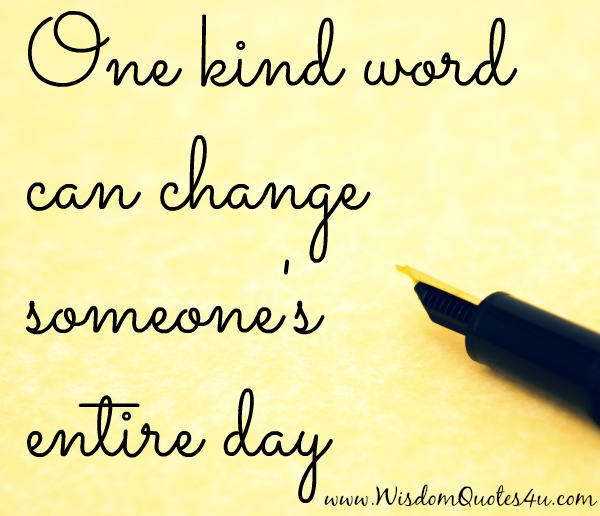 One kind word
can change
someone's
entire day
www.WisdomQuotes4u.com